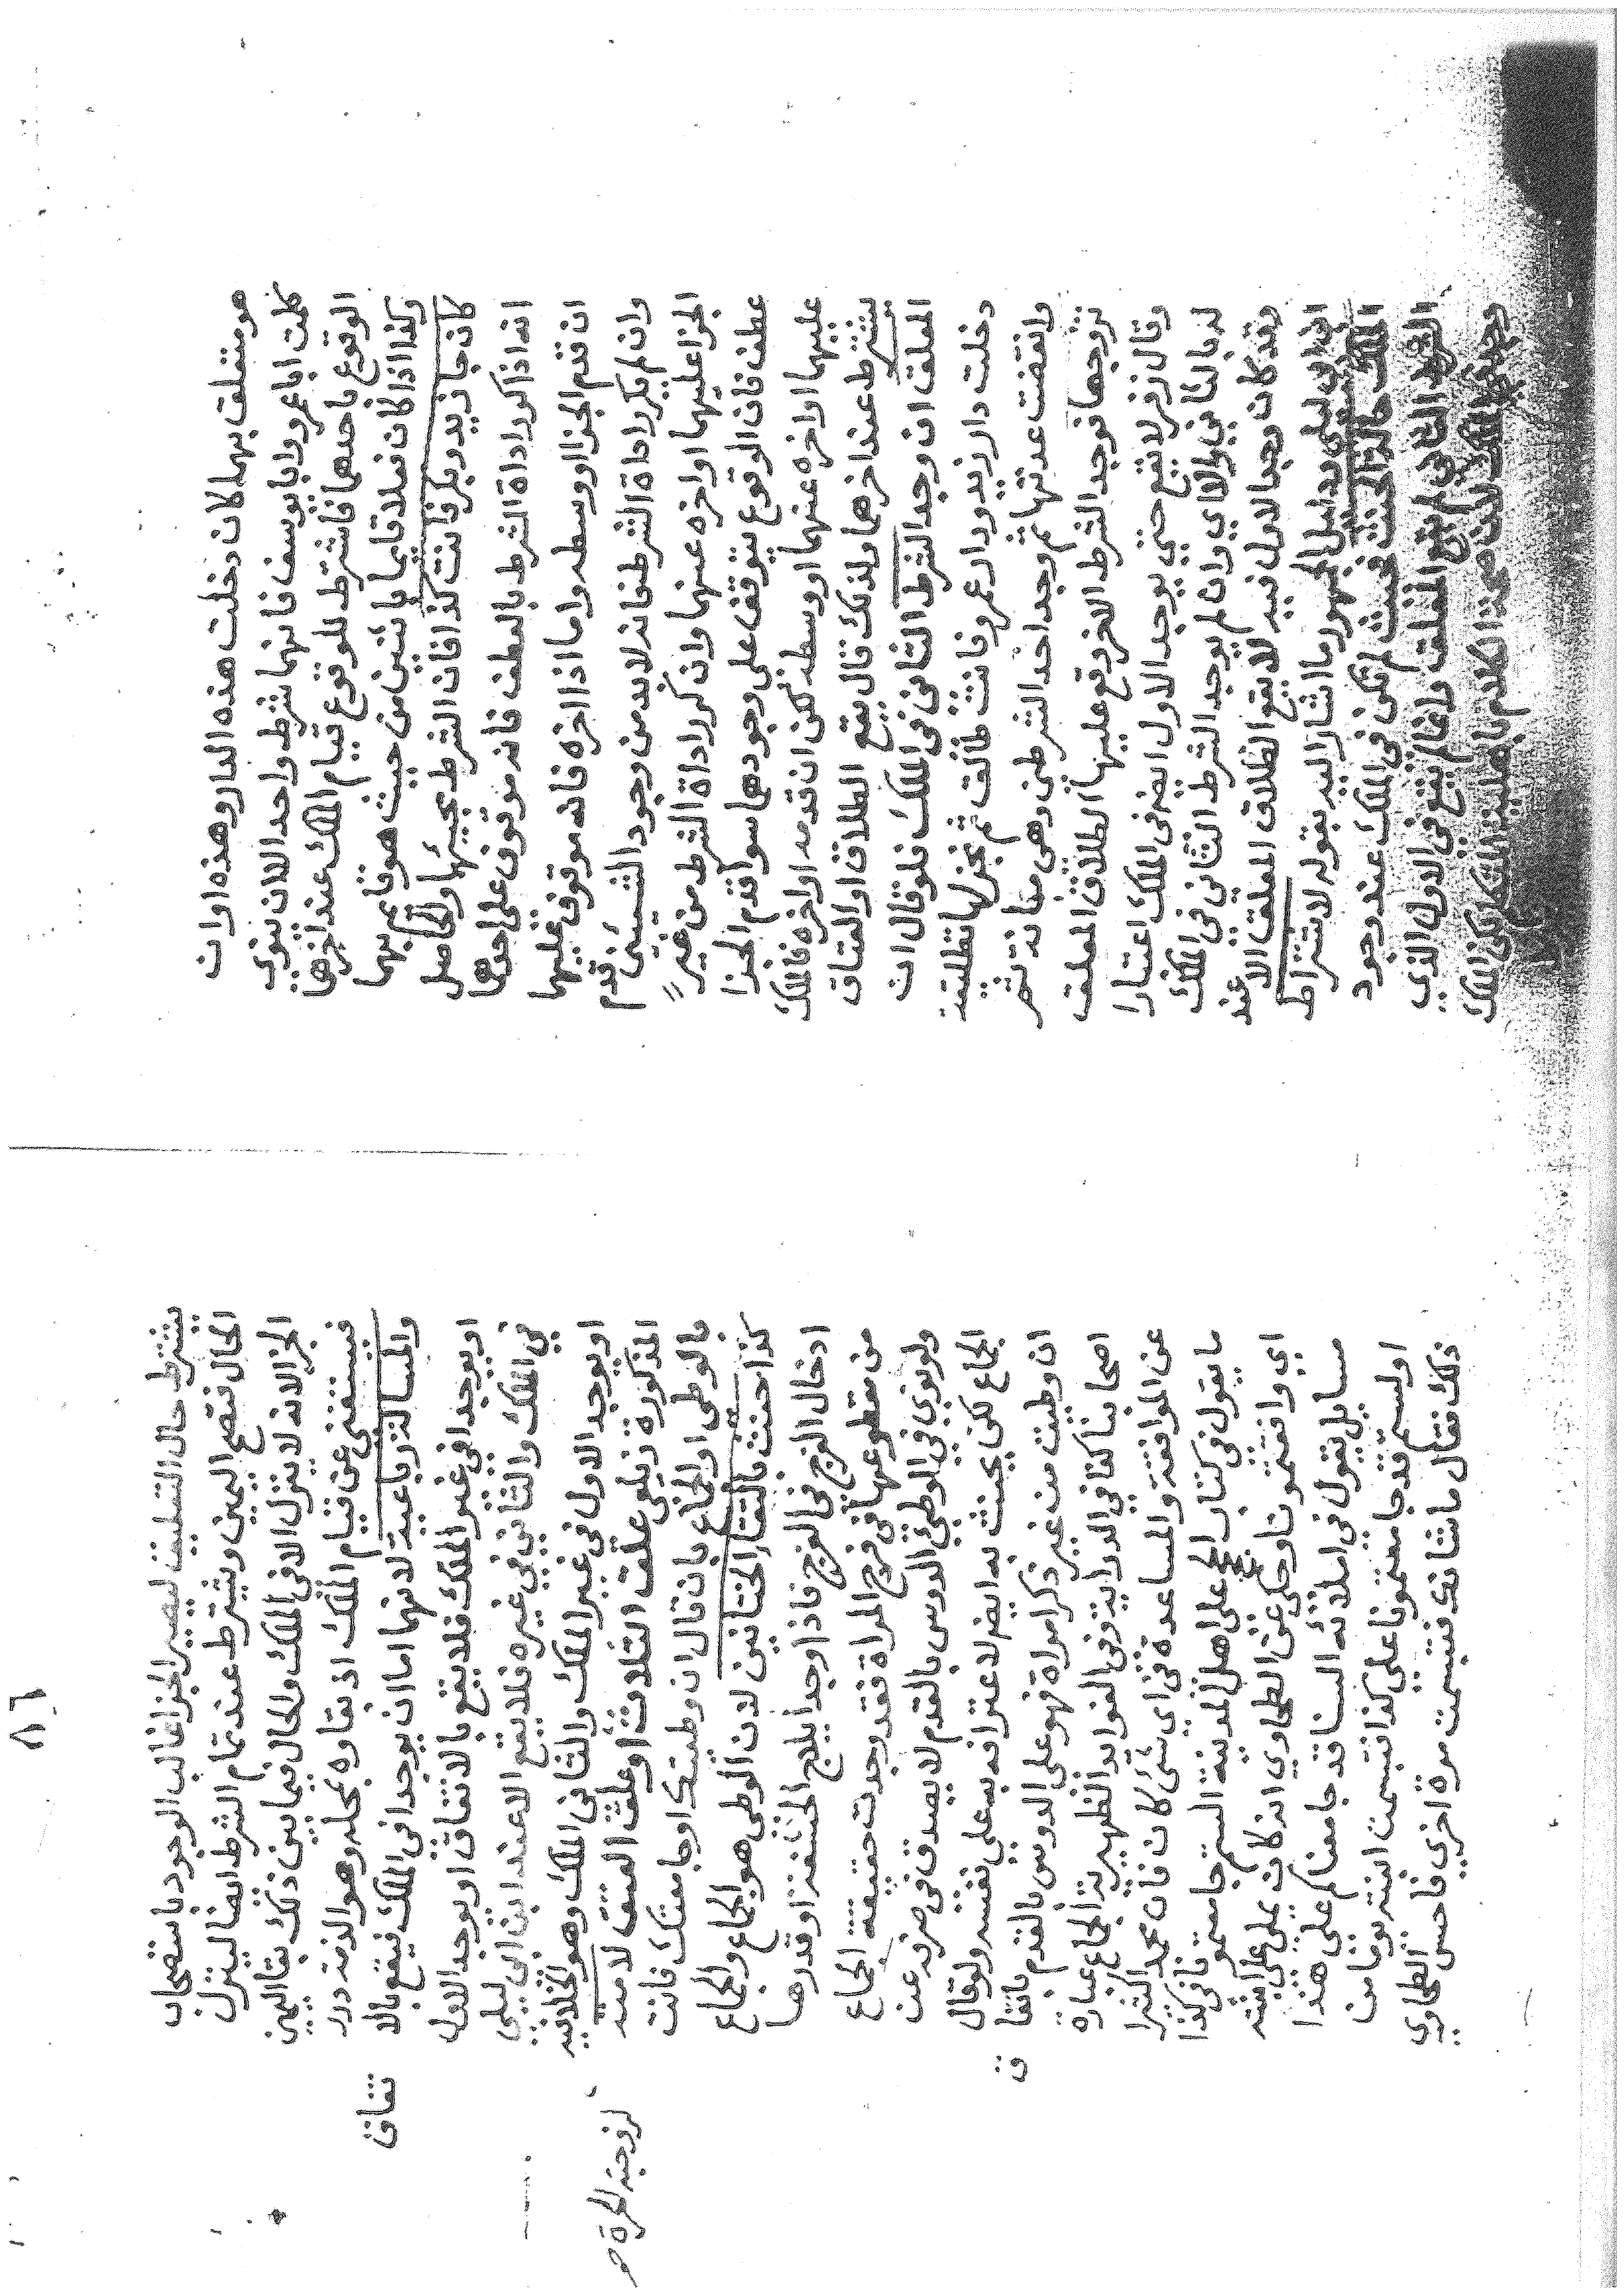 هو متعلق بهما كان دخلت هذه الدار وهذه او ان
كلمت ابا عمرو وابا يوسف فانهما شرط واحد الا ان ينوي
الوقوع باحدهما فاشترط للوقوع قيام الملك عند اخرهما
وكذا اذا كان فعلا قايما باثنين من حيث هو قايم بهما
كان جا زيد وبكر فانت كذا فان الشرط مجيئهما والحاصل
انه اذا كرر اداة الشرط بالعطف فانه موقوف على احدهما
ان قدم الجزا او وسطه واما اذا اخره فانه موقوف عليهما
وان لم يكرر اداة الشرط فانه لابد من وجود الشيئين قدم
الجزا عليهما او اخره عنهما وان كرر اداة الشرط من غير
عطف فان الوقوع يتوقف على وجودهما سوا قدم الجزا
عليهما او اخره عنهما او وسطه لكن ان قدمه او اخره فالملك
يشترط عند اخرهما ولذلك قال يقع الطلاق او العتاق
المعلق ان وجد الشرط الثاني في الملك فلو قال ان
دخلت دار زيد ودار عمرو فانت طالق ثم نجز لها تطليقة
وانقضت عدتها ثم وجد احد الشرطين وهي مبانة ثم
تزوجها فوجد الشرط الاخر وقع عليها الطلاق المعلق
وقال زفر لا يقع حتى يوجد الاول ايضا في الملك اعتبارا
له بالثاني والا اي وان لم يوجد الشرط الثاني في الملك
وقد كان وجد الاول فيه لا يقع الطلاق المعلق الا عند
ابن ابي ليلى ودليل الجمهور ما اشار اليه بقوله لاشتراط
الملك حالة الحنث فحيث لم تكن في الملك عند وجود
الشرط الثاني لم يقع المعلق وانما لم يقع في الاول الذي
وجد في الملك لان صحة الكلام باهلية المتكلم لكن الملك
٨٦
يشترط حال التعليق ليصير الجزا غالب الوجود باستصحاب
الحال فتصح اليمين ويشترط عند تمام الشرط ايضا لينزل
الجزا لانه لا ينزل الا في الملك والحال فيما بين ذلك بقا اليمين
فيستغنى عن قيام الملك اذ بقاوه بمحله وهو الذمة درر
والمسالة رباعية لانهما اما ان يوجدا في الملك فيقع بالا
تفاق
او يوجدا في غير الملك فلا يقع بالاتفاق او يوجد الاول
في الملك والثاني في غيره فلا يقع الا عند ابن ابي ليلى
او يوجد الاول في غير الملك والثاني في الملك وهو الخلافية
المذكورة زيلعي علق الثلاث او علق العتق لامته
لزوجته الحرة صح
بالوطي او الجماع بان قال ان وطيتك او جامعتك فانت
كذا حنث بالتقاء الختانين لان الوطي هو الجماع والجماع
ادخال الفرج في الفرج فاذا وجد ايلاج الحشفة او قدرها
من مقطوعها في فرج المراة فقد وجدت حقيقة الجماع
ولو نوى في الوطي الدوس بالقدم لا يصدق في صرفه عن
الجماع لكن يحنث به ايضا لاعترافه به على نفسه ولو قال
ان وطيت من غير ذكر امراة فهو على الدوس بالقدم باتفا
ق
اصحابنا كذا في الدراية وفي الفوايد الظهيرية الجماع عبارة
عن الموافقة والمساعدة في اي شيء كان فان محمد اكثر ا
ما يقول في كتاب الحج على اهل المدينة الستم جامعتمونا في كذا
اي وافقتمونا وحكى عن الطحاوي انه كان يملي على ابنته
مسايل يقول في املائه السنا قد جامعناكم على هذا
اولستم قد جامعتمونا على كذا فتبسمت ابنته يوما من
ذلك فقال ما شانك فتبسمت مرة اخرى فاحس الطحاوي